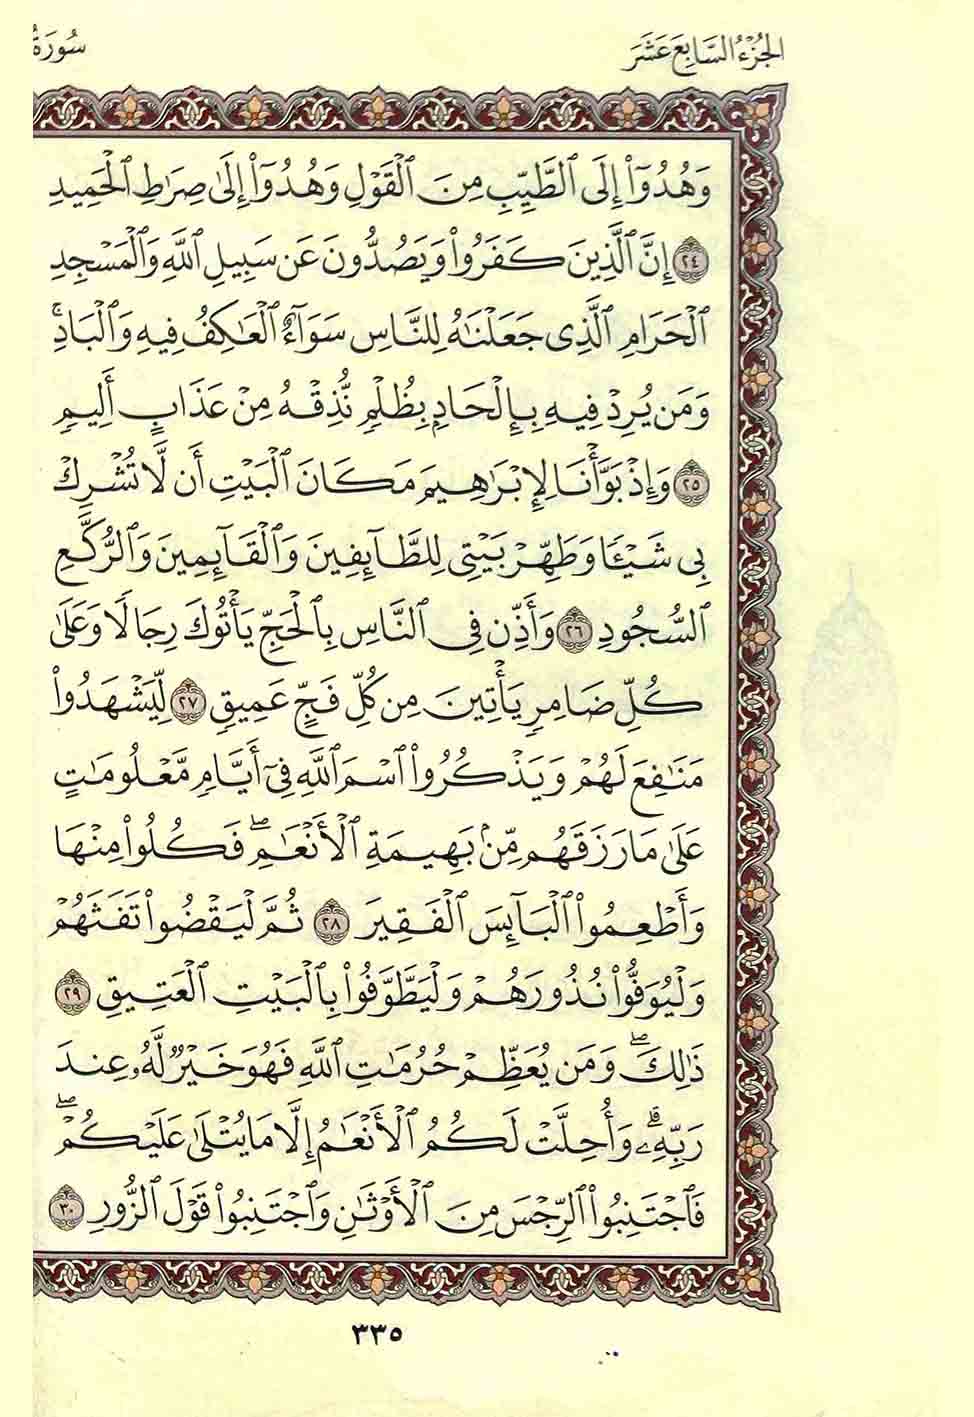 الجُزْءُ السَّابِعَ عَشَرَ
سُورَةُ
وَهُدُوٓا۟ إِلَى ٱلطَّيِّبِ مِنَ ٱلْقَوْلِ وَهُدُوٓا۟ إِلَىٰ صِرَٰطِ ٱلْحَمِيدِ
٢٤ إِنَّ ٱلَّذِينَ كَفَرُوا۟ وَيَصُدُّونَ عَن سَبِيلِ ٱللَّهِ وَٱلْمَسْجِدِ
ٱلْحَرَامِ ٱلَّذِى جَعَلْنَٰهُ لِلنَّاسِ سَوَآءً ٱلْعَٰكِفُ فِيهِ وَٱلْبَادِ ۚ
وَمَن يُرِدْ فِيهِ بِإِلْحَادٍۭ بِظُلْمٍ نُّذِقْهُ مِنْ عَذَابٍ أَلِيمٍ
٢٥ وَإِذْ بَوَّأْنَا لِإِبْرَٰهِيمَ مَكَانَ ٱلْبَيْتِ أَن لَّا تُشْرِكْ
بِى شَيْـًٔا وَطَهِّرْ بَيْتِىَ لِلطَّآئِفِينَ وَٱلْقَآئِمِينَ وَٱلرُّكَّعِ
ٱلسُّجُودِ ٢٦ وَأَذِّن فِى ٱلنَّاسِ بِٱلْحَجِّ يَأْتُوكَ رِجَالًا وَعَلَىٰ
كُلِّ ضَامِرٍ يَأْتِينَ مِن كُلِّ فَجٍّ عَمِيقٍ ٢٧ لِّيَشْهَدُوا۟
مَنَٰفِعَ لَهُمْ وَيَذْكُرُوا۟ ٱسْمَ ٱللَّهِ فِىٓ أَيَّامٍ مَّعْلُومَٰتٍ
عَلَىٰ مَا رَزَقَهُم مِّنۢ بَهِيمَةِ ٱلْأَنْعَٰمِ ۖ فَكُلُوا۟ مِنْهَا
وَأَطْعِمُوا۟ ٱلْبَآئِسَ ٱلْفَقِيرَ ٢٨ ثُمَّ لْيَقْضُوا۟ تَفَثَهُمْ
وَلْيُوفُوا۟ نُذُورَهُمْ وَلْيَطَّوَّفُوا۟ بِٱلْبَيْتِ ٱلْعَتِيقِ ٢٩
ذَٰلِكَ ۖ وَمَن يُعَظِّمْ حُرُمَٰتِ ٱللَّهِ فَهُوَ خَيْرٌ لَّهُۥ عِندَ
رَبِّهِۦ ۗ وَأُحِلَّتْ لَكُمُ ٱلْأَنْعَٰمُ إِلَّا مَا يُتْلَىٰ عَلَيْكُمْ ۖ
فَٱجْتَنِبُوا۟ ٱلرِّجْسَ مِنَ ٱلْأَوْثَٰنِ وَٱجْتَنِبُوا۟ قَوْلَ ٱلزُّورِ ٣٠
٣٣٥